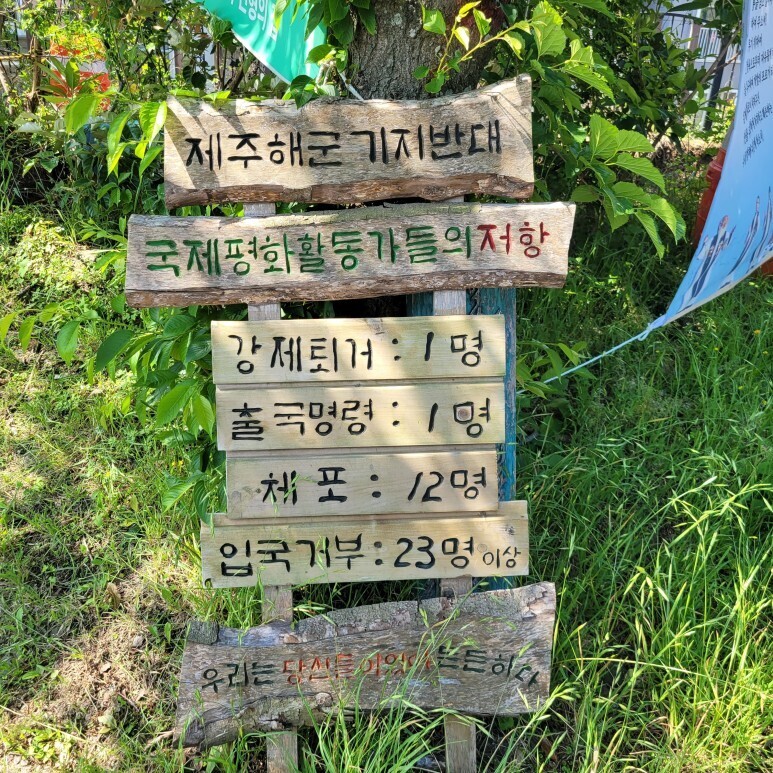 제주해군기지반대
국제평화활동가들의저항
강제퇴거 : 1명
출국명령 : 1명
체포 : 12명
입국거부 : 23명 이상
우리는